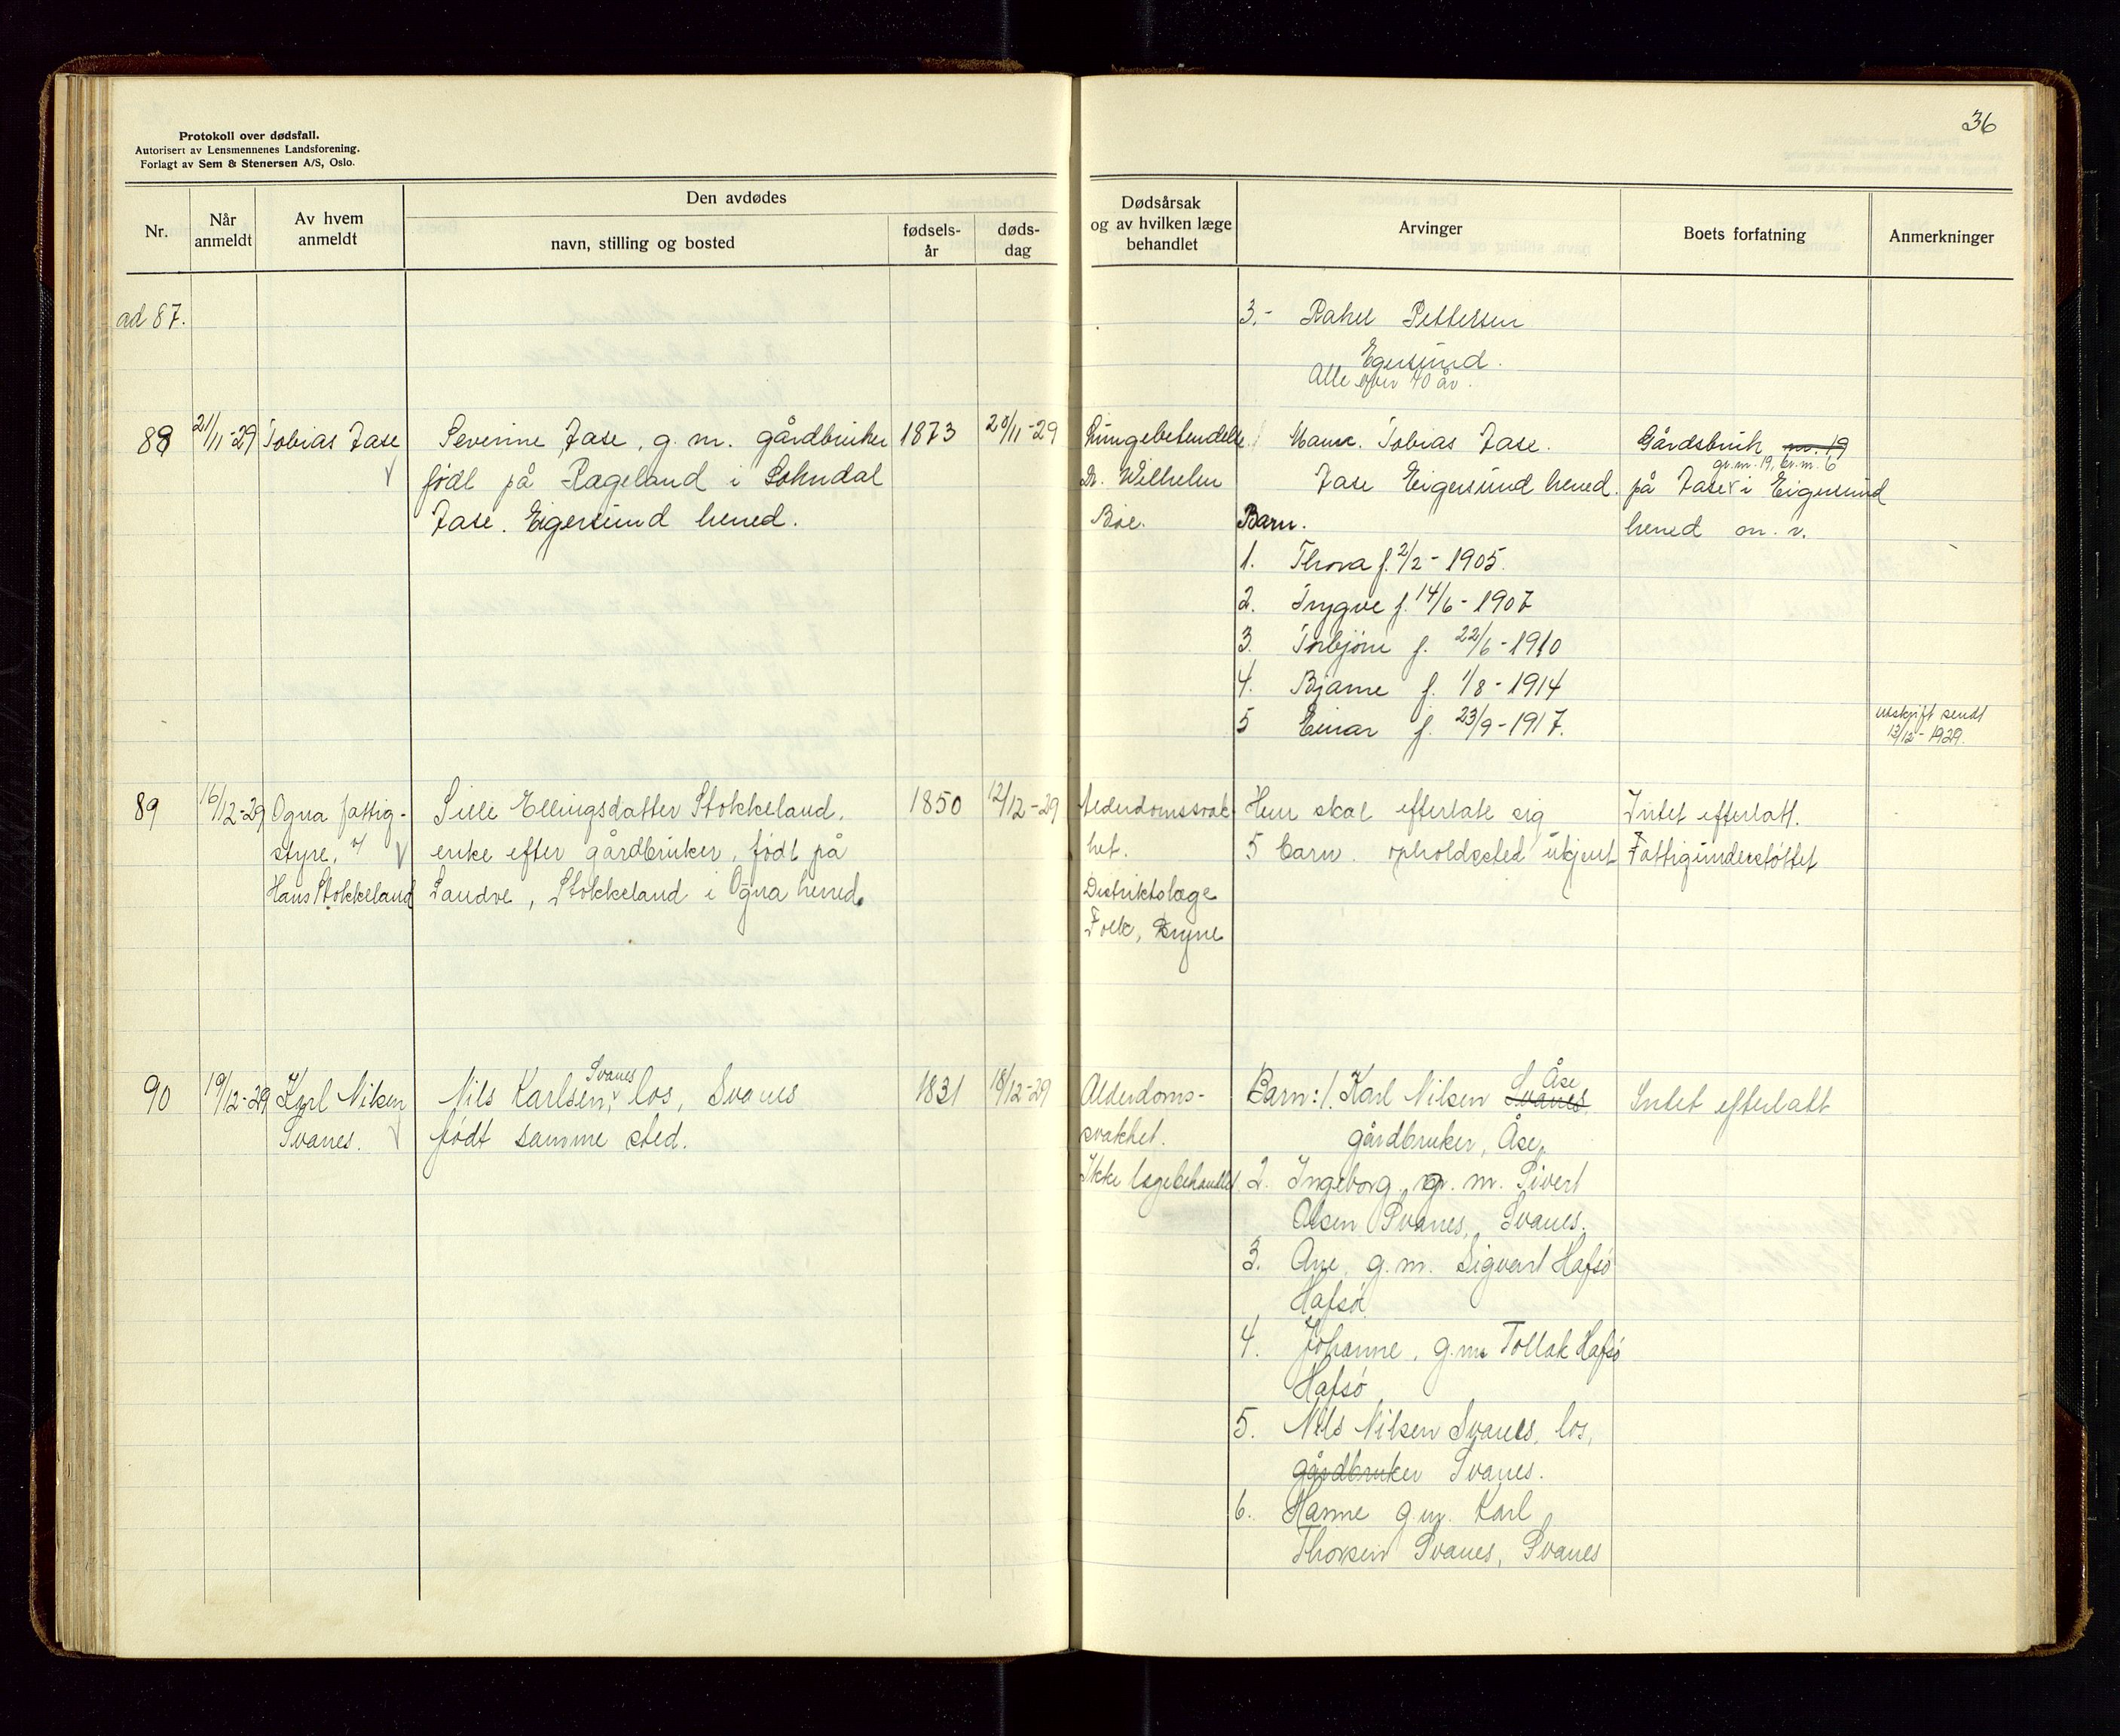 36
Protokoll over dødsfall.
Autorisert av Lensmennenes Landsforening.
Forlagt av Sem & Stenersen A/S, Oslo.
Nr.
Når anmeldt
Av hvem anmeldt
Den avdødes
navn, stilling og bosted
fødsels-år
døds-dag
Dødsårsak og av hvilken læge behandlet
Arvinger
Boets forfatning
Anmerkninger
ad 87.
3.- Rahel Pettersen
Egersund.
Alle over 40 år.
88 21/11-29 Tobias Jase
Severine Jase, g. m. gårdbruker 1873 20/11-29
født på Rageland i Sokndal
Jase. Eigersund hered.
Lungebetendelse
Dr. Wilhelm
Boe.
Mann. Tobias Jase.
Jase Eigersund hered.
Barn.
1. Thora f. 2/2 - 1905.
2. Trygve f. 14/6 - 1907
3. Torbjörn f. 22/6 - 1910
4. Bjarne f. 1/8 - 1914
5 Einar f. 23/9 - 1917.
Gårdsbruk nr. 19
gr.nr. 19, br.nr. 6
på Jase i Eigersund
hered m. v.
utskrift sendt
13/12 - 1929.
89 16/12-29 Ogna fattig-
styre, v/
Hans Stokkeland
Sille Ellingsdatter Stokkeland, 1850 12/12-29
enke efter gårdbruker, født på
Sandve, Stokkeland i Ogna hered.
Alderdomssvak
het.
Distriktslæge
Folk, Bryne
Hun skal efterlate sig
5 barn. opholdssted ukjent
Intet efterlatt.
Fattigunderstøttet
90 19/12-29 Karl Nilsen
Svanes.
Nils Karlsen, Svanes los, Svanes 1831 18/12-29
født samme sted.
Alderdoms-
svakhet.
Ikke lægebehandlet
Barn: 1. Karl Nilsen Svanes Åse
gårdbruker, Åse,
2. Ingeborg, g. m. Sivert
Olsen Svanes, Svanes.
3. Ane, g.m. Sigvart Hafsö
Hafsö
4. Johanne, g.m. Tollak Hafsö
Hafsö
5. Nils Nilsen Svanes, los,
gårdbruker Svanes.
6. Hanne g.m. Karl
Thorsen Svanes, Svanes
Intet efterlatt